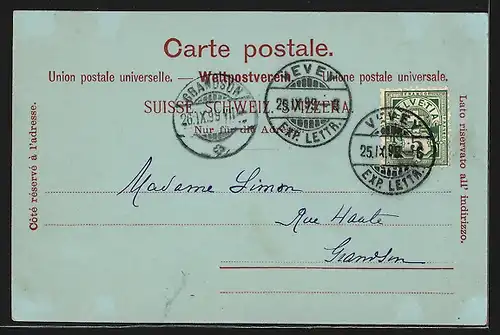 Carte postale.
Union postale universelle. — Weltpostverein. — Unione postale universale.
SUISSE. SCHWEIZ. SVIZZERA.
Nur für die Adresse.
Côté réservé à l'adresse.
Lato riservato all' indirizzo.
GRANDSON
26.IX.99.VII
VEVEY
25.IX.99.
EXP. LETTR.
HELVETIA
VEVEY
25.IX.99.
EXP. LETTR.
Madame Simon
Rue Haute
Grandson